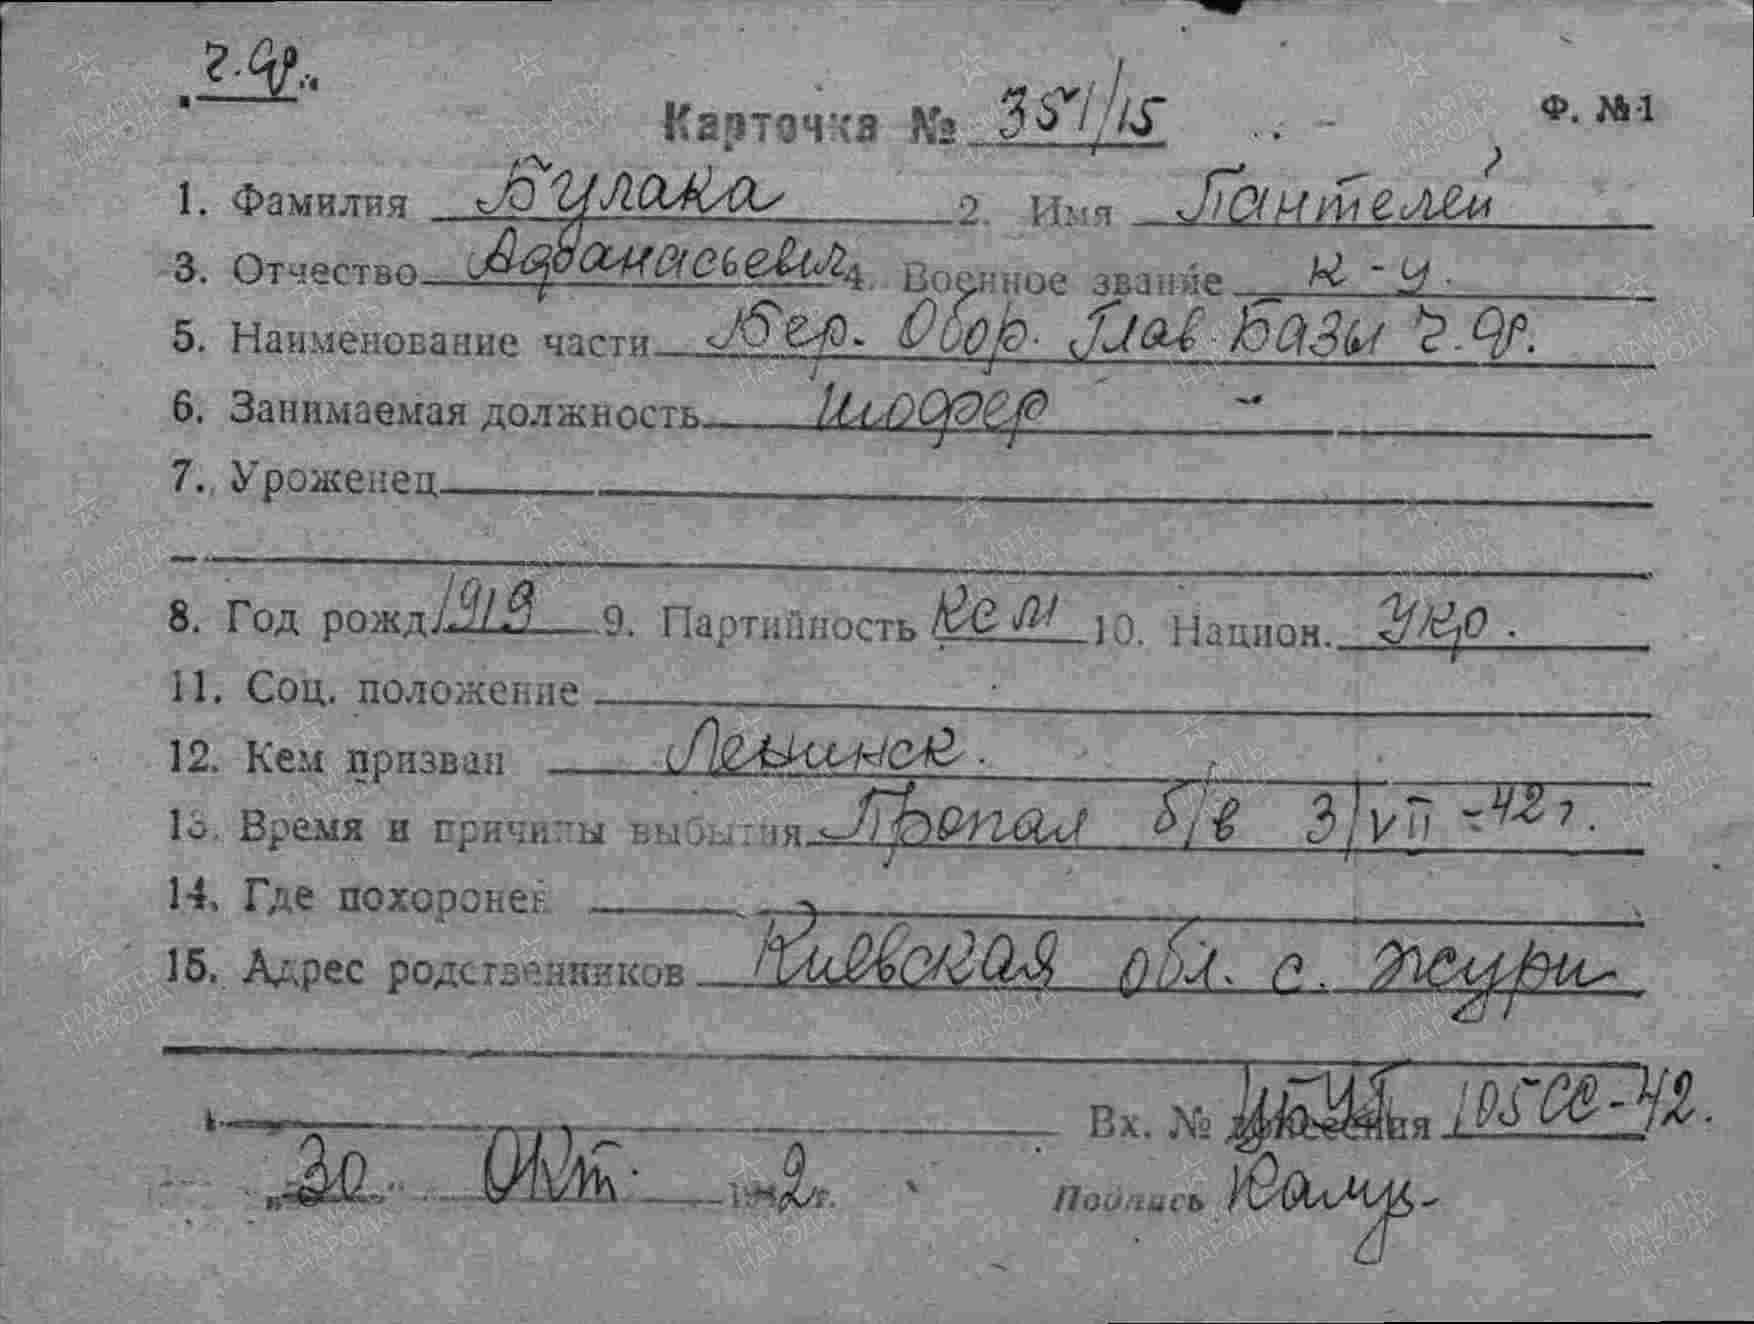 Ч.Ф.
Карточка № 351/15 Ф. № 1
1. Фамилия Булака 2. Имя Пантелей
3. Отчество Афанасьевич 4. Военное звание к-ц.
5. Наименование части Бер. Обор. Глав. Базы Ч.Ф.
6. Занимаемая должность шофер
7. Уроженец
8. Год рожд. 1919 9. Партийность ВЛКСМ 10. Национ. Укр.
11. Соц. положение
12. Кем призван Ленинск.
13. Время и причины выбытия Пропал б/в 3/VII-42 г.
14. Где похоронен
15. Адрес родственников Киевская обл. с. Жури
Вх. № 105СС-42.
"30" Окт. 1942 г. Подпись
ПАМЯТЬ НАРОДА